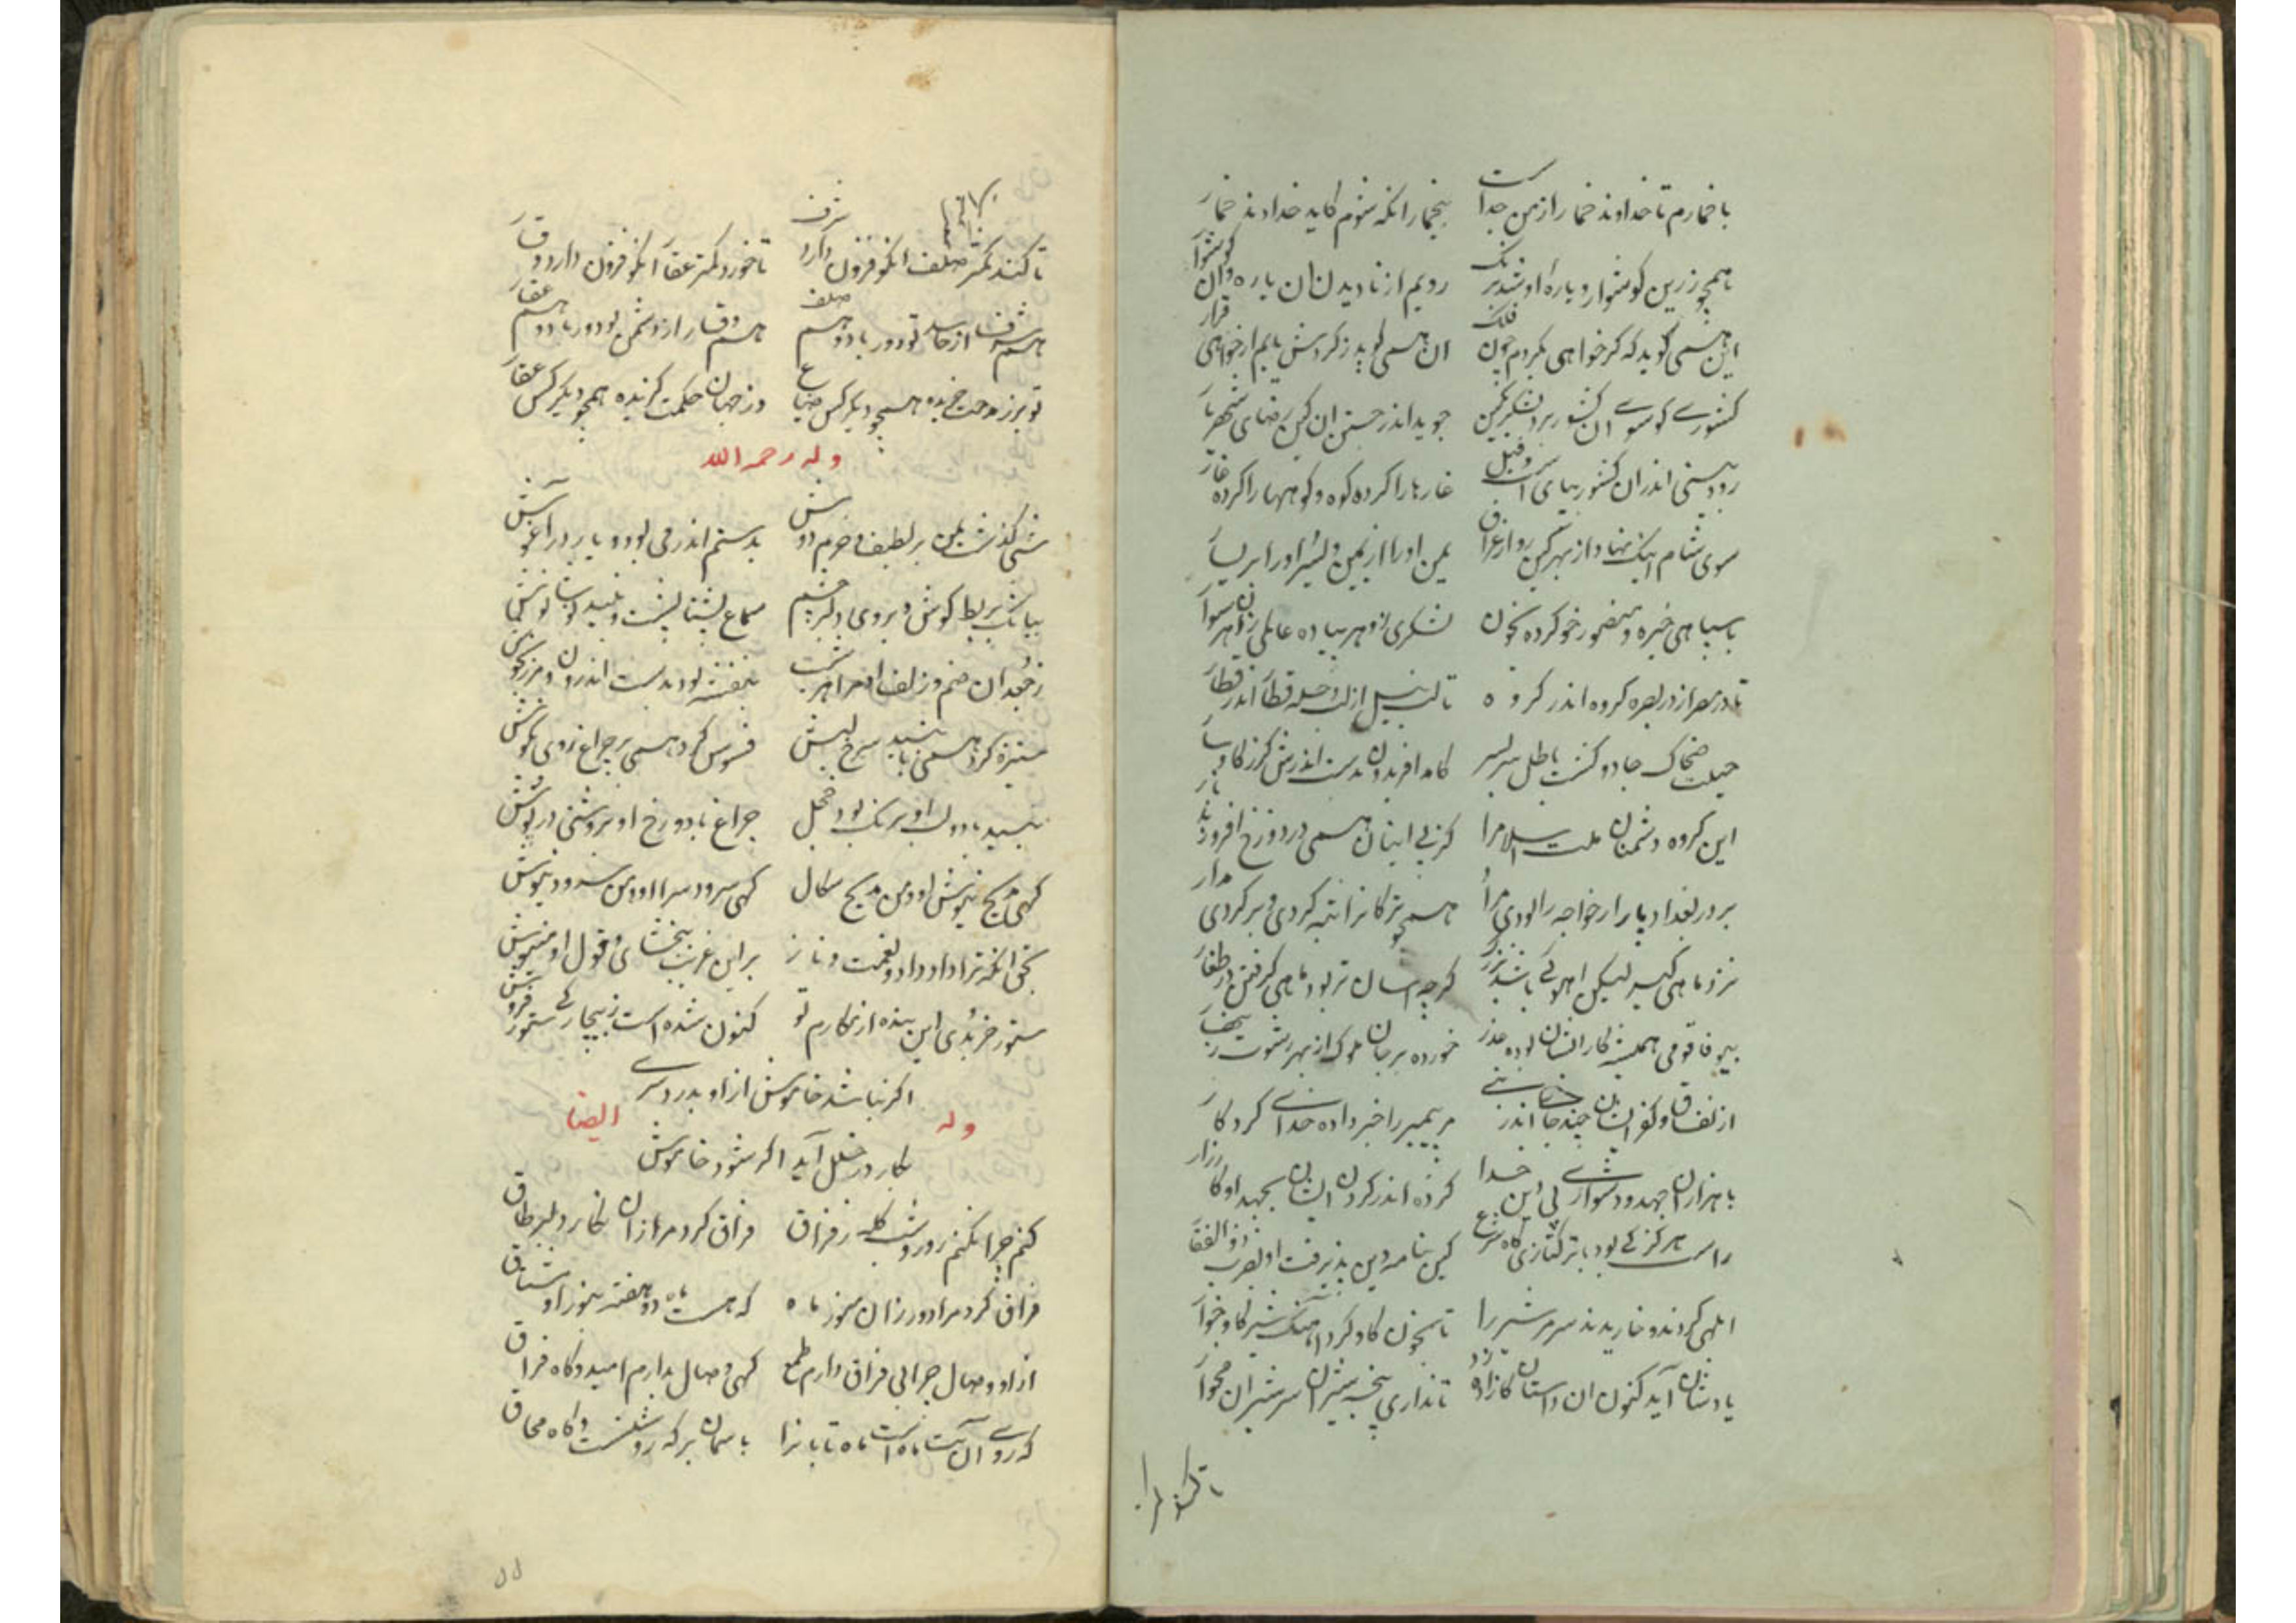 با خمارم تا خداوند خمار از من جداست بیخمار انکه شوم کاید خداوند خمار
همچو زرین کوشوار و یاره او شد برنک رویم از نادیدن ان یاره وان کوشوار
این همی کوید که کر خواهی بکردم چون فلک ان همی کوید ز کردش یابم ار خواهی قرار
کشوری کو سوی ان کشور برد لشکر بکین جوید اندر جستن ان کین رضای شهریار
رودیستی اندران کشور بپای اسب و فیل غارها را کرده کوه و کوهها را کرده غار
سوی شام اینک نهاد از بهر کین رو از عراق یمن او را از یمین و یسر او را بر یسار
با سپاهی خیره و منصور خو کرده بخون لشکری زو هر پیاده عالمی زو هر سوار
تا در مصر از در بصره کروه اندر کروه تا لب نیل از لب دجله قطار اندر قطار
حیلت ضحاک جادو کشت باطل سر بسر کامد افریدون بدست اندرش کرز کاوسار
این کروه دشمنان ملت اسلام را کز پی ایشان همی در دوزخ افروزند نار
بر در بغداد یار ار خواجه را بودی مرا همچو ترکانرا تبه کردی و بر کردی بدار
نرز ماهی کیر لیکن اهو کی باشد بزرک کرچه اسان تر بود ماهی کرفتن در طغار
بیوفا قومی همیشه کار ایشان بوده غدر خورده بر جان ملوک از بهر رشوت زینهار
از نفاق و کفر ایشان چند جای اندر نبی مر پیمبر را خبر داده خدای کردکار
با هزاران جهد و دشواری بی دین خدا کرده اندر کردن ایشان بجهد او کارزار
راست هرکز کی بود با ترکتازی کاه شرع کین بنامه دین پذیرفت او بضرب ذوالفقار
ابلهی کردند و خاریدند سر مر شیر را تا بخون کاو کرد اهنک شیر کاوخوار
یادشان آید کنون ان داستان کازاده زد تا نداری پنجه شیران سر شیران مخار
تا کند کمتر صلف انکو فزون دارد شرف تا خورد کمتر عقار انکو فزون دارد وقار
هم شرف از حاسد تو دور باد و هم صلف هم وقار از دشمن تو دور باد و هم عقار
تو برز مدحت خریده همچو دیکر کس ضیاع در جهان حکمت کزیده همچو دیکر کس عقار
وله رحمه الله
شبی کذشت بمن بر لطیف و خرم دوش بدستم اندر می بود و یار در آغوش
ببانک بربط کوش و بروی دلبر چشم سماع پشتا پشت و نبید نوشا نوش
ز جعد ان صنم و زلف او مرا همه شب بنفشه بود بدست اندرون و مرزنکوش
ستیزه کرد همی با نبید سرخ لبش فسوس کرد همی بر چراغ روی نکوش
نبید با دو لب او برنک بود خجل چراغ با دو رخ او بروشنی در پوش
کهی مدیح نیوش او و من مدیح سکال کهی سرود سرا او و من سرود نیوش
بحق انکه ترا داد داد و نعمت و ناز بر این غریب ببخشای و قول او منیوش
ستور خر بدی این بنده از مکارم تو کنون شده است ز بیچارکی ستور فروش
اکر نباشد خاموش از او بدرد سری
وله ایضا
بکار در خلل آید اکر شود خاموش
کنم چرا نکنم روز و شب کله ز فراق فراق کرد مرا زان نکار دلبر طاق
فراق کرد مرا دور زان سموز ماه که هست ماه دو هفته بنور او مشتاق
از او وصال چرا بی فراق دارم طمع کهی وصال بدارم امید و کاه فراق
که روی آن بت ماه است ماه تابانرا باسمان بر که روشنست و کاه محاق